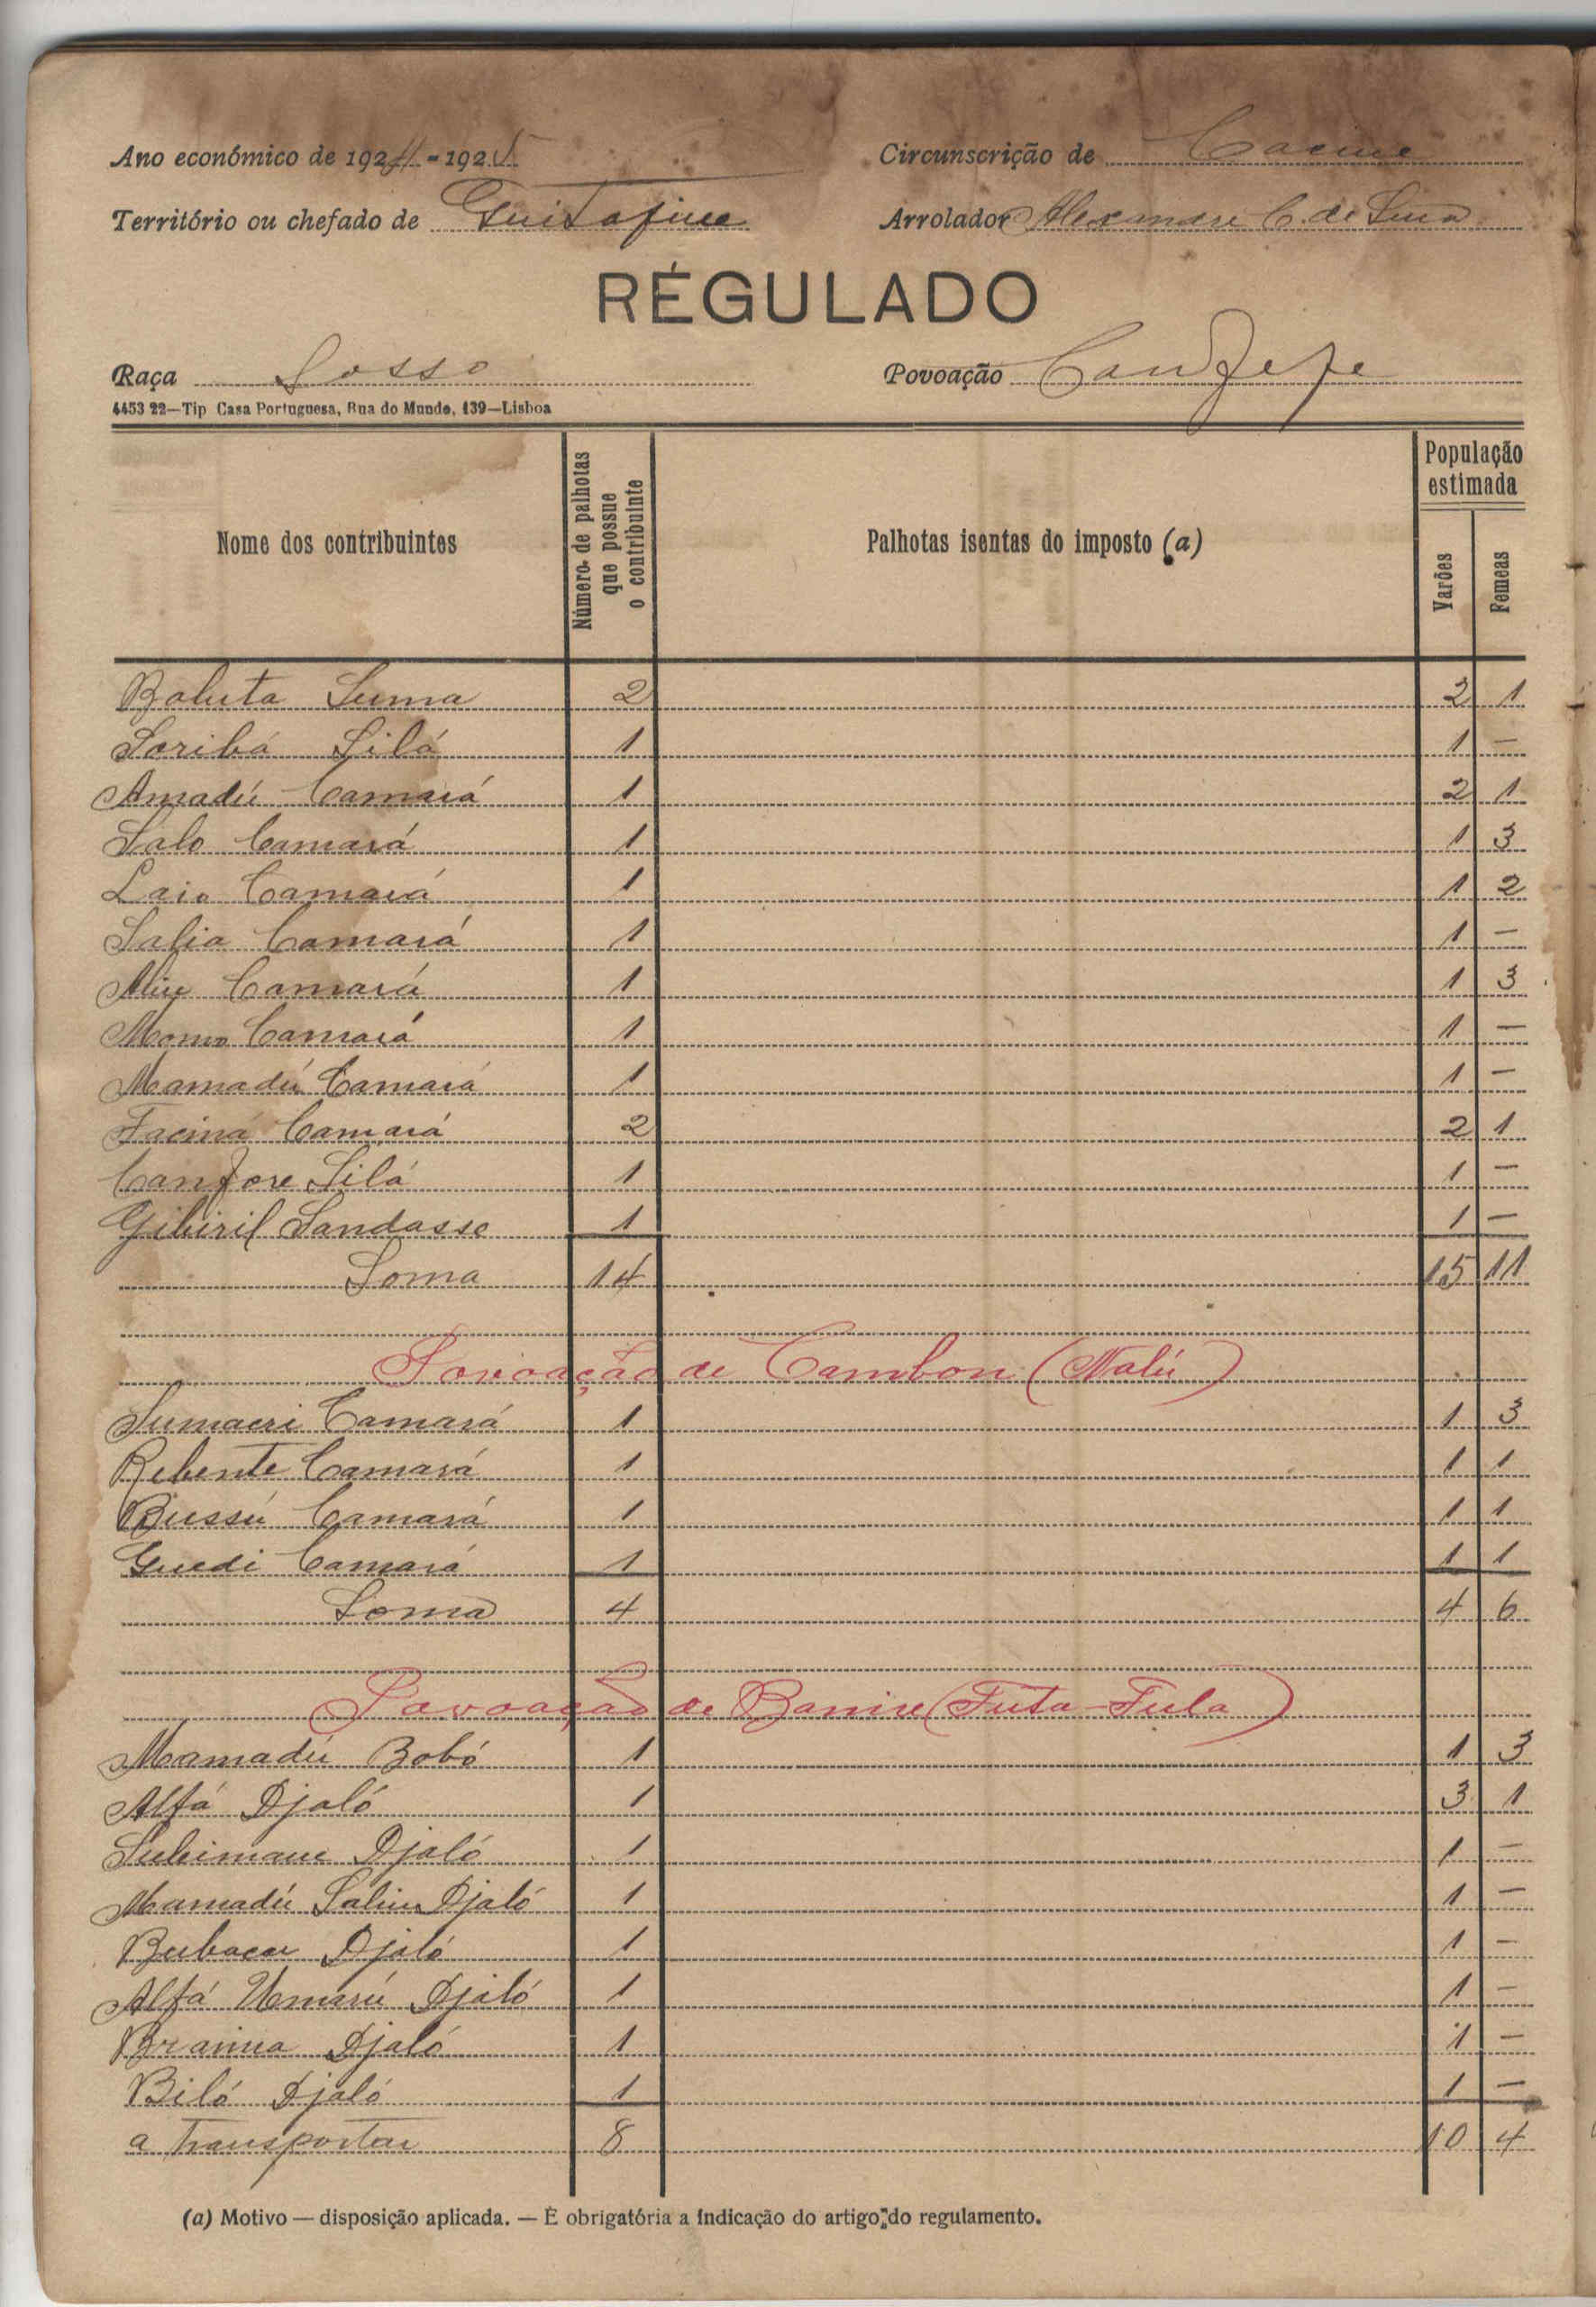 Ano económico de 1924-1925 Circunscrição de Cacine
Território ou chefado de Guitafine Arrolador Alexandre C. de
RÉGULADO
Raça Sosso Povoação Canfefe
4453 22—Tip Casa Portuguesa, Rua do Mundo, 139—Lisboa
Nome dos contribuintes Número de palhotas que possue o contribuinte Palhotas isentas do imposto (a) População estimada Varões Femeas
Baluta Suma 2 2 1
Soribá Silá 1 1 —
Amadú Camará 1 2 1
Salo Camará 1 1 3
Laia Camará 1 1 2
Salia Camará 1 1 —
Aliu Camará 1 1 3
Momo Camará 1 1 —
Mamadú Camará 1 1 —
Faciná Camará 2 2 1
Canfore Silá 1 1 —
Gibiril Sandasse 1 1 —
Soma 14 15 11
Povoação de Cambon (Nalú)
Sumaeri Camará 1 1 3
Rebente Camará 1 1 1
Bussú Camará 1 1 1
Guedi Camará 1 1 1
Soma 4 4 6
Povoação de Banire (Futa-Fula)
Mamadú Bobó 1 1 3
Alfá Djaló 1 3 1
Suleimane Djaló 1 1 —
Mamadú Saliu Djaló 1 1 —
Bubacar Djaló 1 1 —
Alfá Umarú Djaló 1 1 —
Braima Djaló 1 1 —
Biló Djaló 1 1 —
a transportar 8 10 4
(a) Motivo — disposição aplicada. — É obrigatória a indicação do artigo do regulamento.